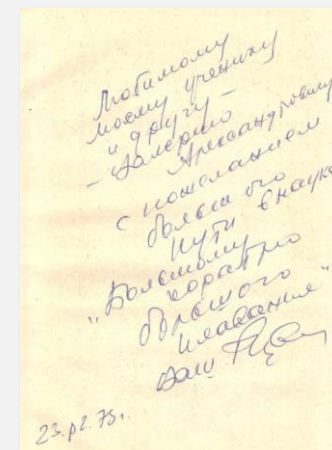 Любимому
моему ученику
и другу –
– Валерию
Александровичу
с пожеланием
большого
пути в науке
"Большому
кораблю
большого
плавания"
Ваш
23.12.75г.